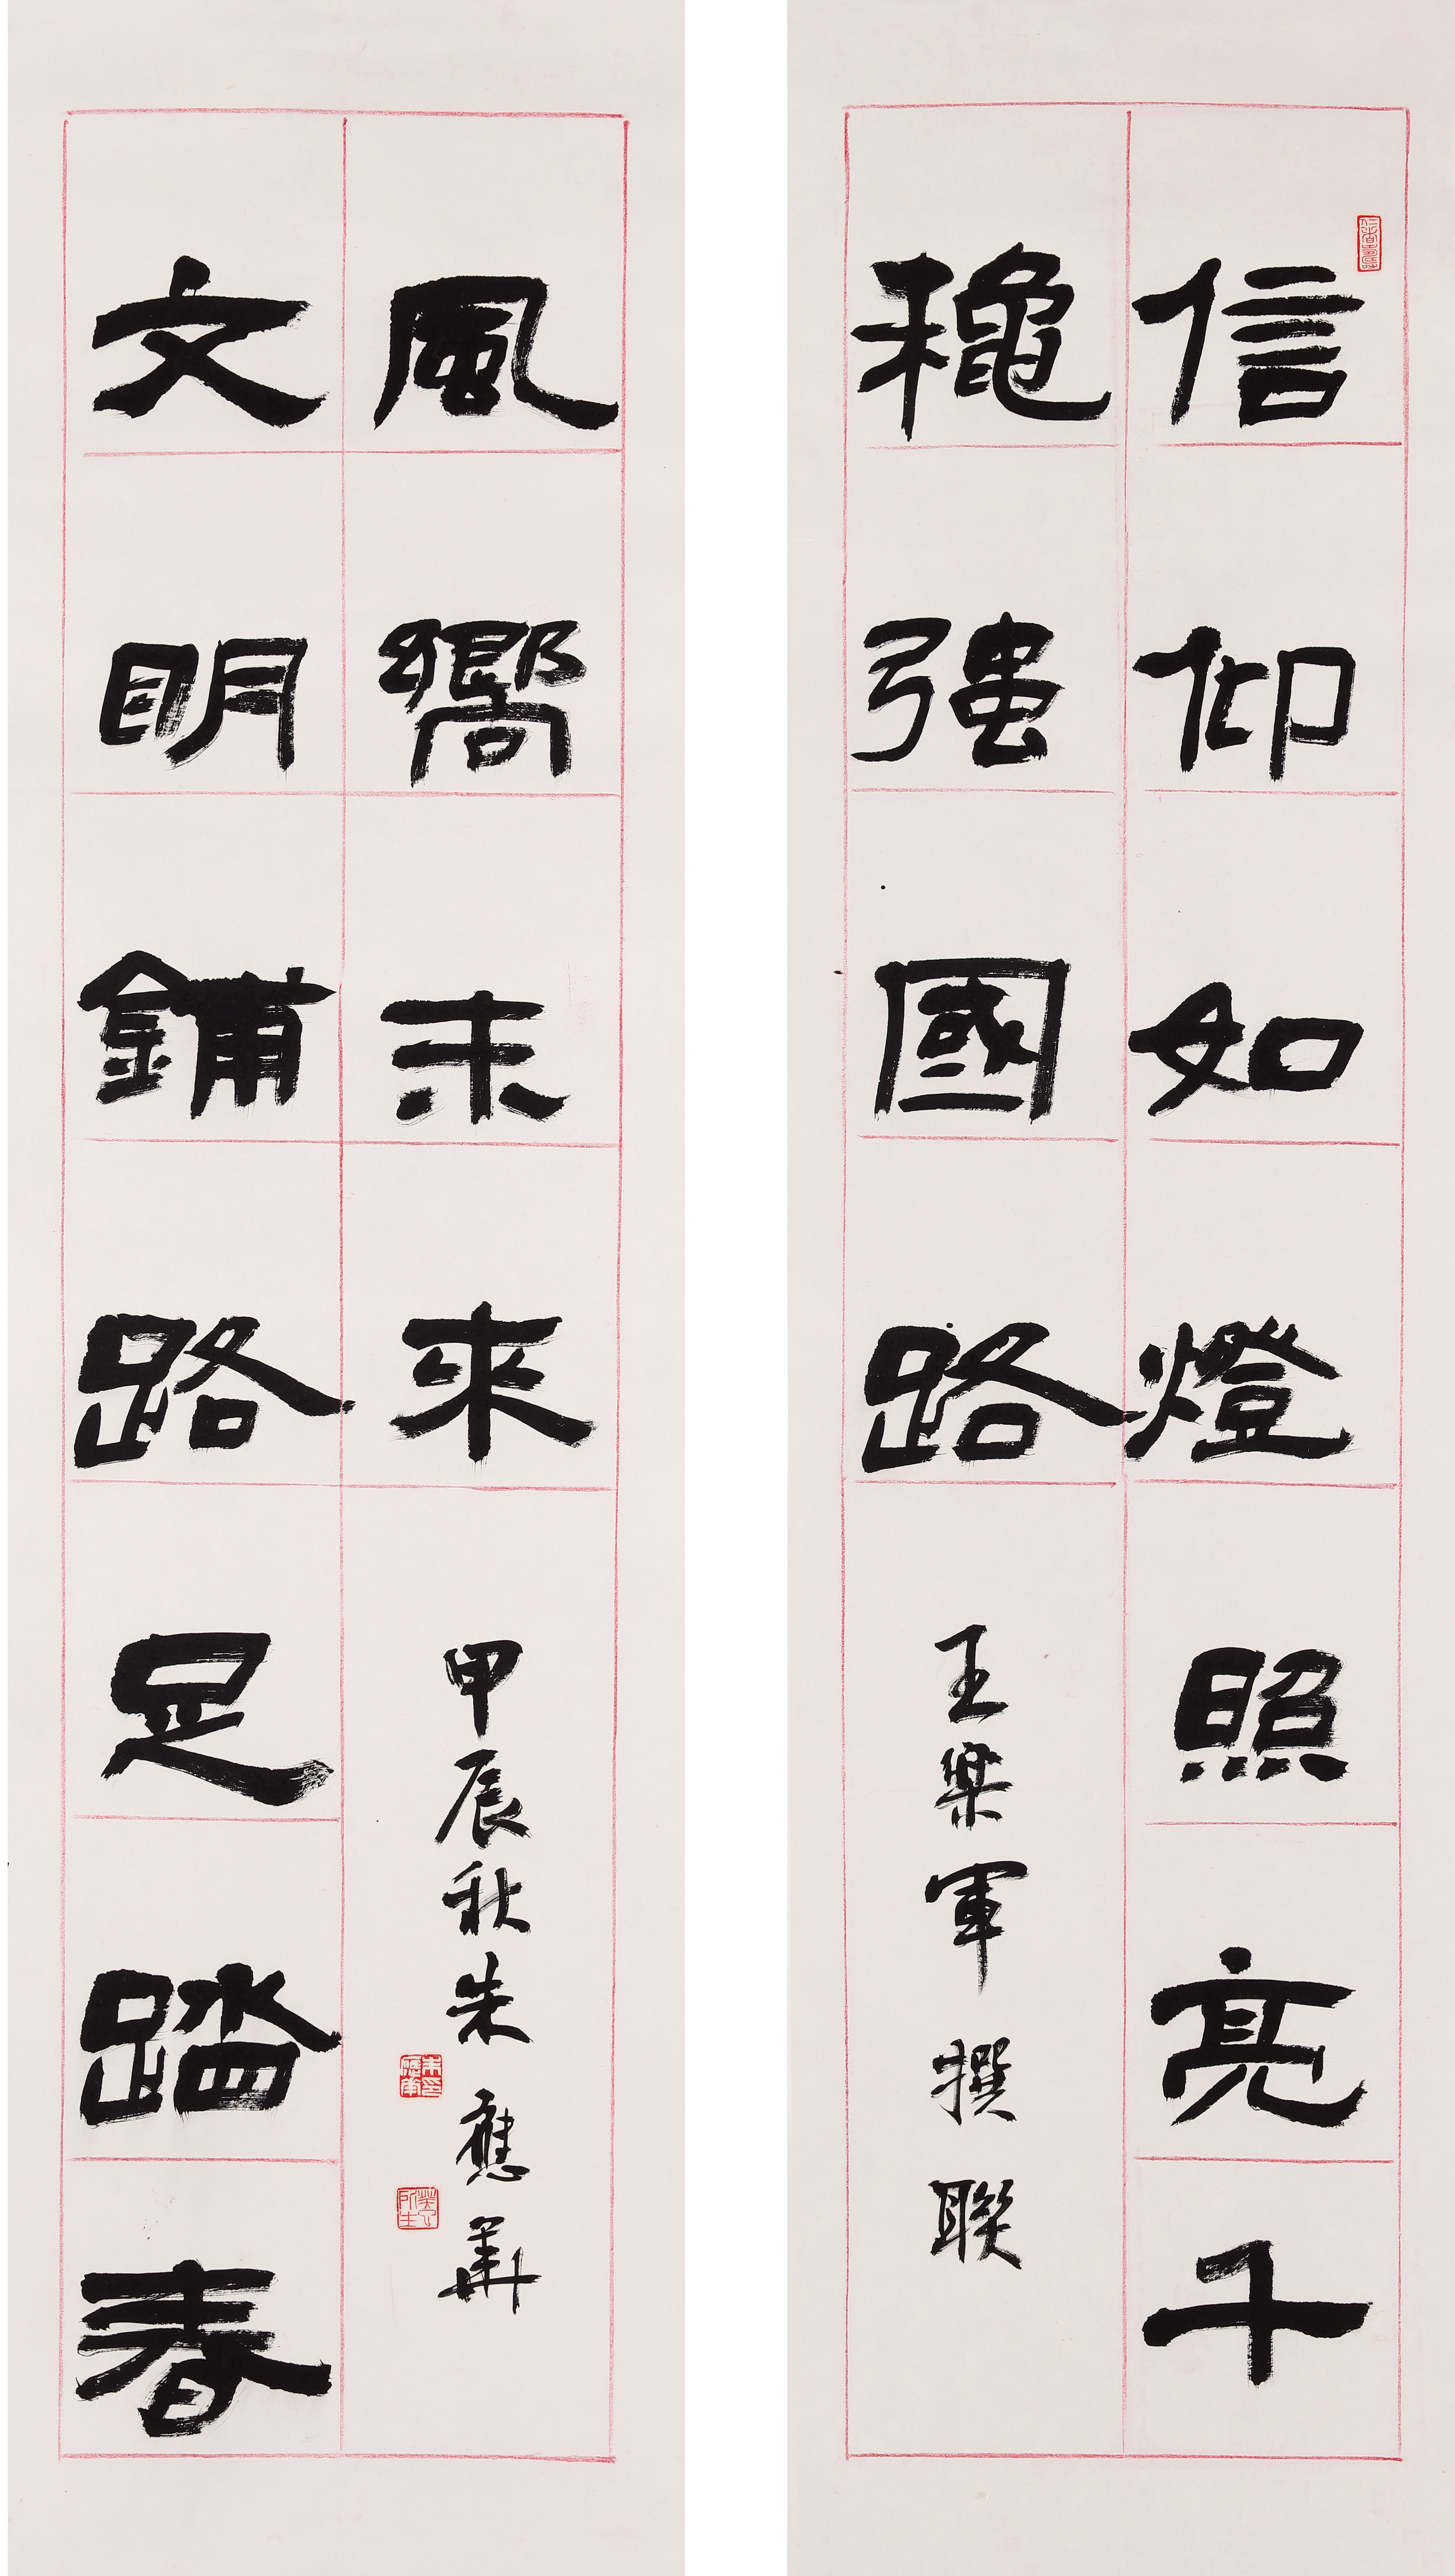 信仰如燈照亮千
穐強國路
王楽軍撰聯
文明鋪路足踏春
風嚮未來
甲辰秋朱應華